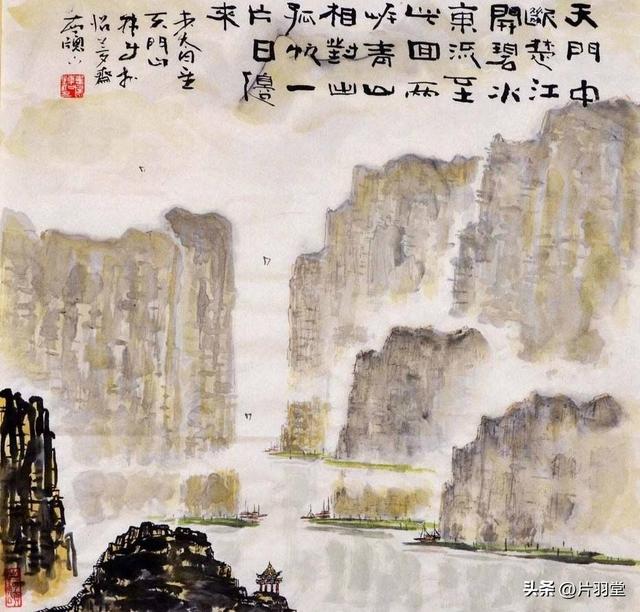 天門中
斷楚江
開碧水
東流至
此回兩
岸青山
相對出
孤帆一
片日邊
來
太白
天门山
头条 @片羽堂